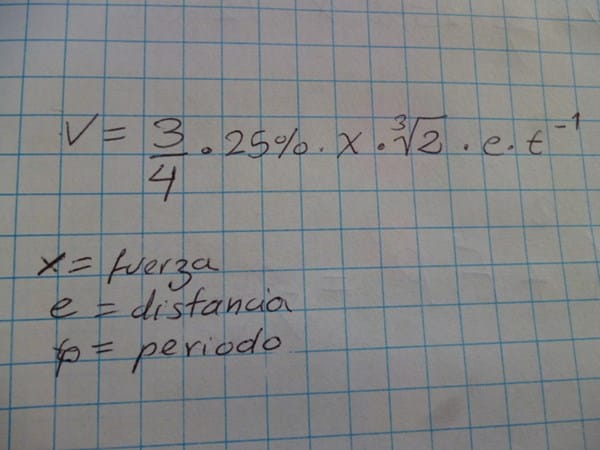 V = 3/4 · 25% · x · ∛2 · e · t⁻¹
x = fuerza
e = distancia
p = periodo